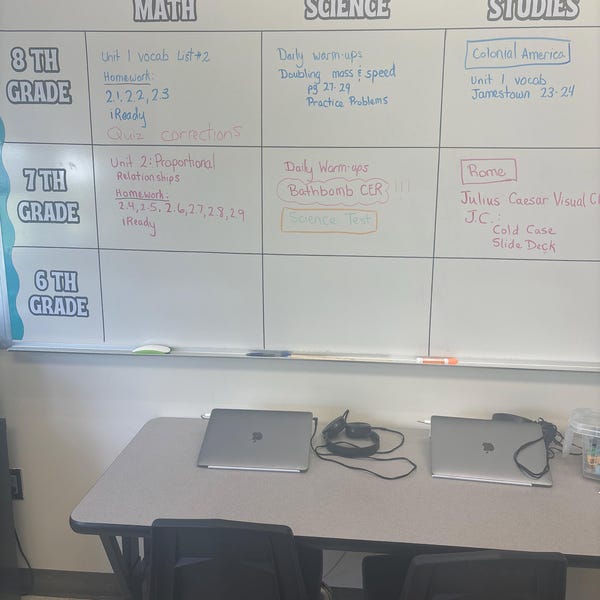 MATH
SCIENCE
STUDIES
8TH
GRADE
Unit 1 vocab List #2
Homework:
2.1, 2.2, 2.3
iReady
Quiz corrections
Daily warm-ups
Doubling mass & speed
pg 27-29
Practice Problems
Colonial America
Unit 1 vocab
Jamestown 23-24
7TH
GRADE
Unit 2: Proportional
Relationships
Homework:
2.4, 2.5, 2.6, 2.7, 2.8, 2.9
iReady
Daily Warm-ups
Bathbomb CER !!!
Science Test
Rome
Julius Caesar Visual
J.C.:
Cold Case
Slide Deck
6TH
GRADE